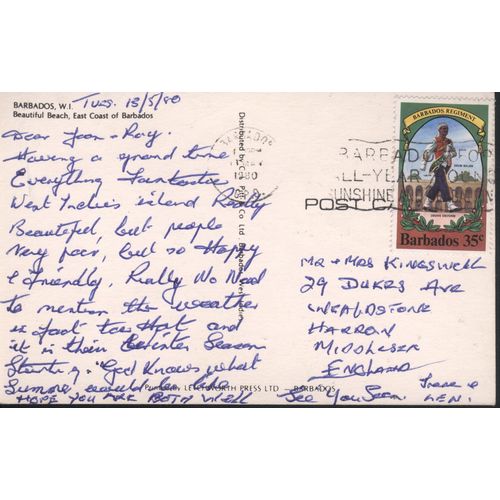 BARBADOS, W.I.
Beautiful Beach, East Coast of Barbados
Tues. 13/5/80
Dear Jean & Ray.
Having a grand time
Everything Fantastic
West Indies island Really
Beautiful but people
Very poor, but so Happy
& friendly, Really No Need
to mention the weather
in fact too Hot and
it is their Winter Season
Starting, God Knows what
Summer would be like
HOPE YOU ARE BOTH WELL
See You Soon.
Irene &
LEN.
Distributed by
Co Ltd Barbados, West Indies
Printed by LETCHWORTH PRESS LTD — BARBADOS
BARBADOS
1980
BARBADOS FOR
ALL-YEAR
SUNSHINE
POST CARD
BARBADOS REGIMENT
Barbados 35c
MR & MRS KINGSWELL
29 DUKES AVE
WEALDSTONE
HARROW
MIDDLESEX
ENGLAND